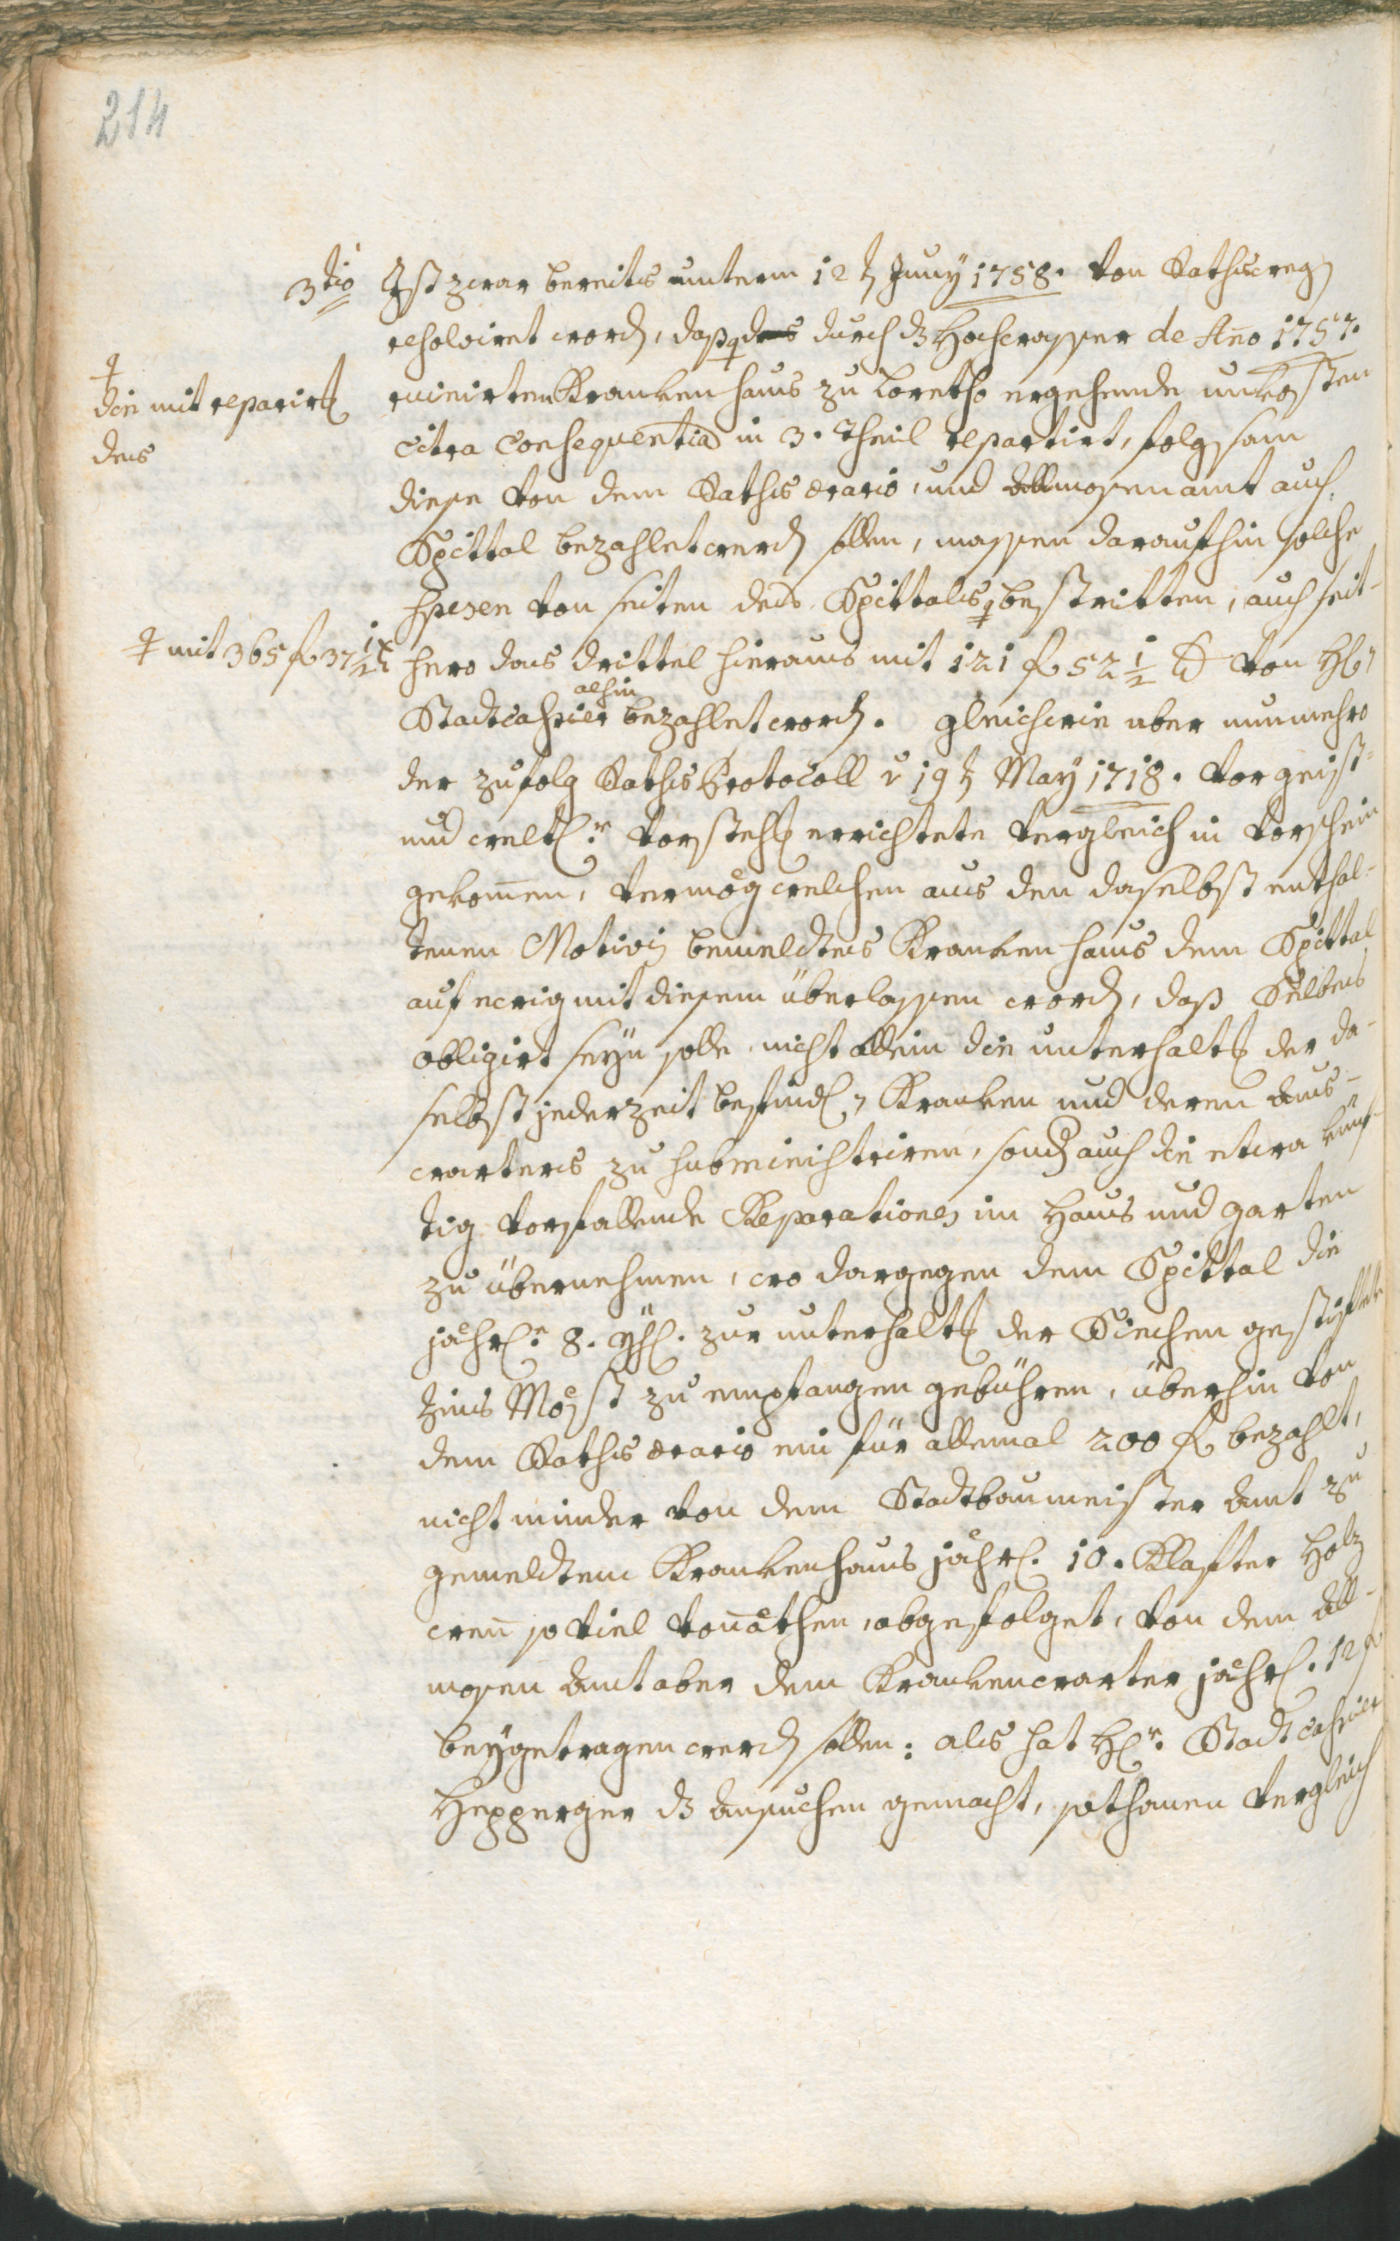 214
3tiò Ist zwar bereits unterm 12ten Juny 1758. von Raths weg
resolvirt word, daß das durch dz Hochwasser de Año 1757.
die mit reparirung
des
ruinirten Krankenhaus zu Loretho ergehende unkosten
citra consequentiam in 3. Theil repartirt, folgsam
diese von dem Raths ærario, und Allmosenamt auch
Spittal bezahlet werdn sollen, massen daraufhin solche
spesen von seiten des Spittals bestritten, auch seit-
mit 365 fl 37 1/2 x
hero das drittel hieraus mit 121 fl 52 1/2 x von Hn
alhin
Stadtcassier bezahlet word. gleichwie aber nunmehro
der zufolg Raths Protocoll v 19ten May 1718. vor geist-
und weltl.r Vorstehung errichtete Vergleich in Vorschein
gekomen, vermög welchen aus den daselbst enthal-
tenen Motivis bemeldtes Krankenhaus dem Spittal
auf ewig mit diesem überlassen word, daß Selbes
obligirt seyn solle nicht allein die unterhaltung der da-
selbst jederzeit befindl.n Kranken und deren aus-
warters zu subministriren, sond auch die etwa künf-
tig vorfallende Reparationes im Haus und garten
zu übernehmen, wo dargegen dem Spittal die
jährl.r 8. Yhl. zur unterhaltung der Siechen gestiftete
Zins Möst zu empfangen gebühren, überhin von
dem Raths ærario ein für allemal 200 fl bezahlt,
nicht minder von dem Stadtbaumeister Amt zu
gemeldtem Krankenhaus jährl. 10. Klafter Holz
wen so viel vonöthen, abgefolget, von dem All-
mosen Amt aber dem Krankenwarter jährl. 12 fl
beygetragen werdn sollen: als hat Hr. Stadtcassier
Hepperger dz Ansuchen gemacht, sothanen Vergleich